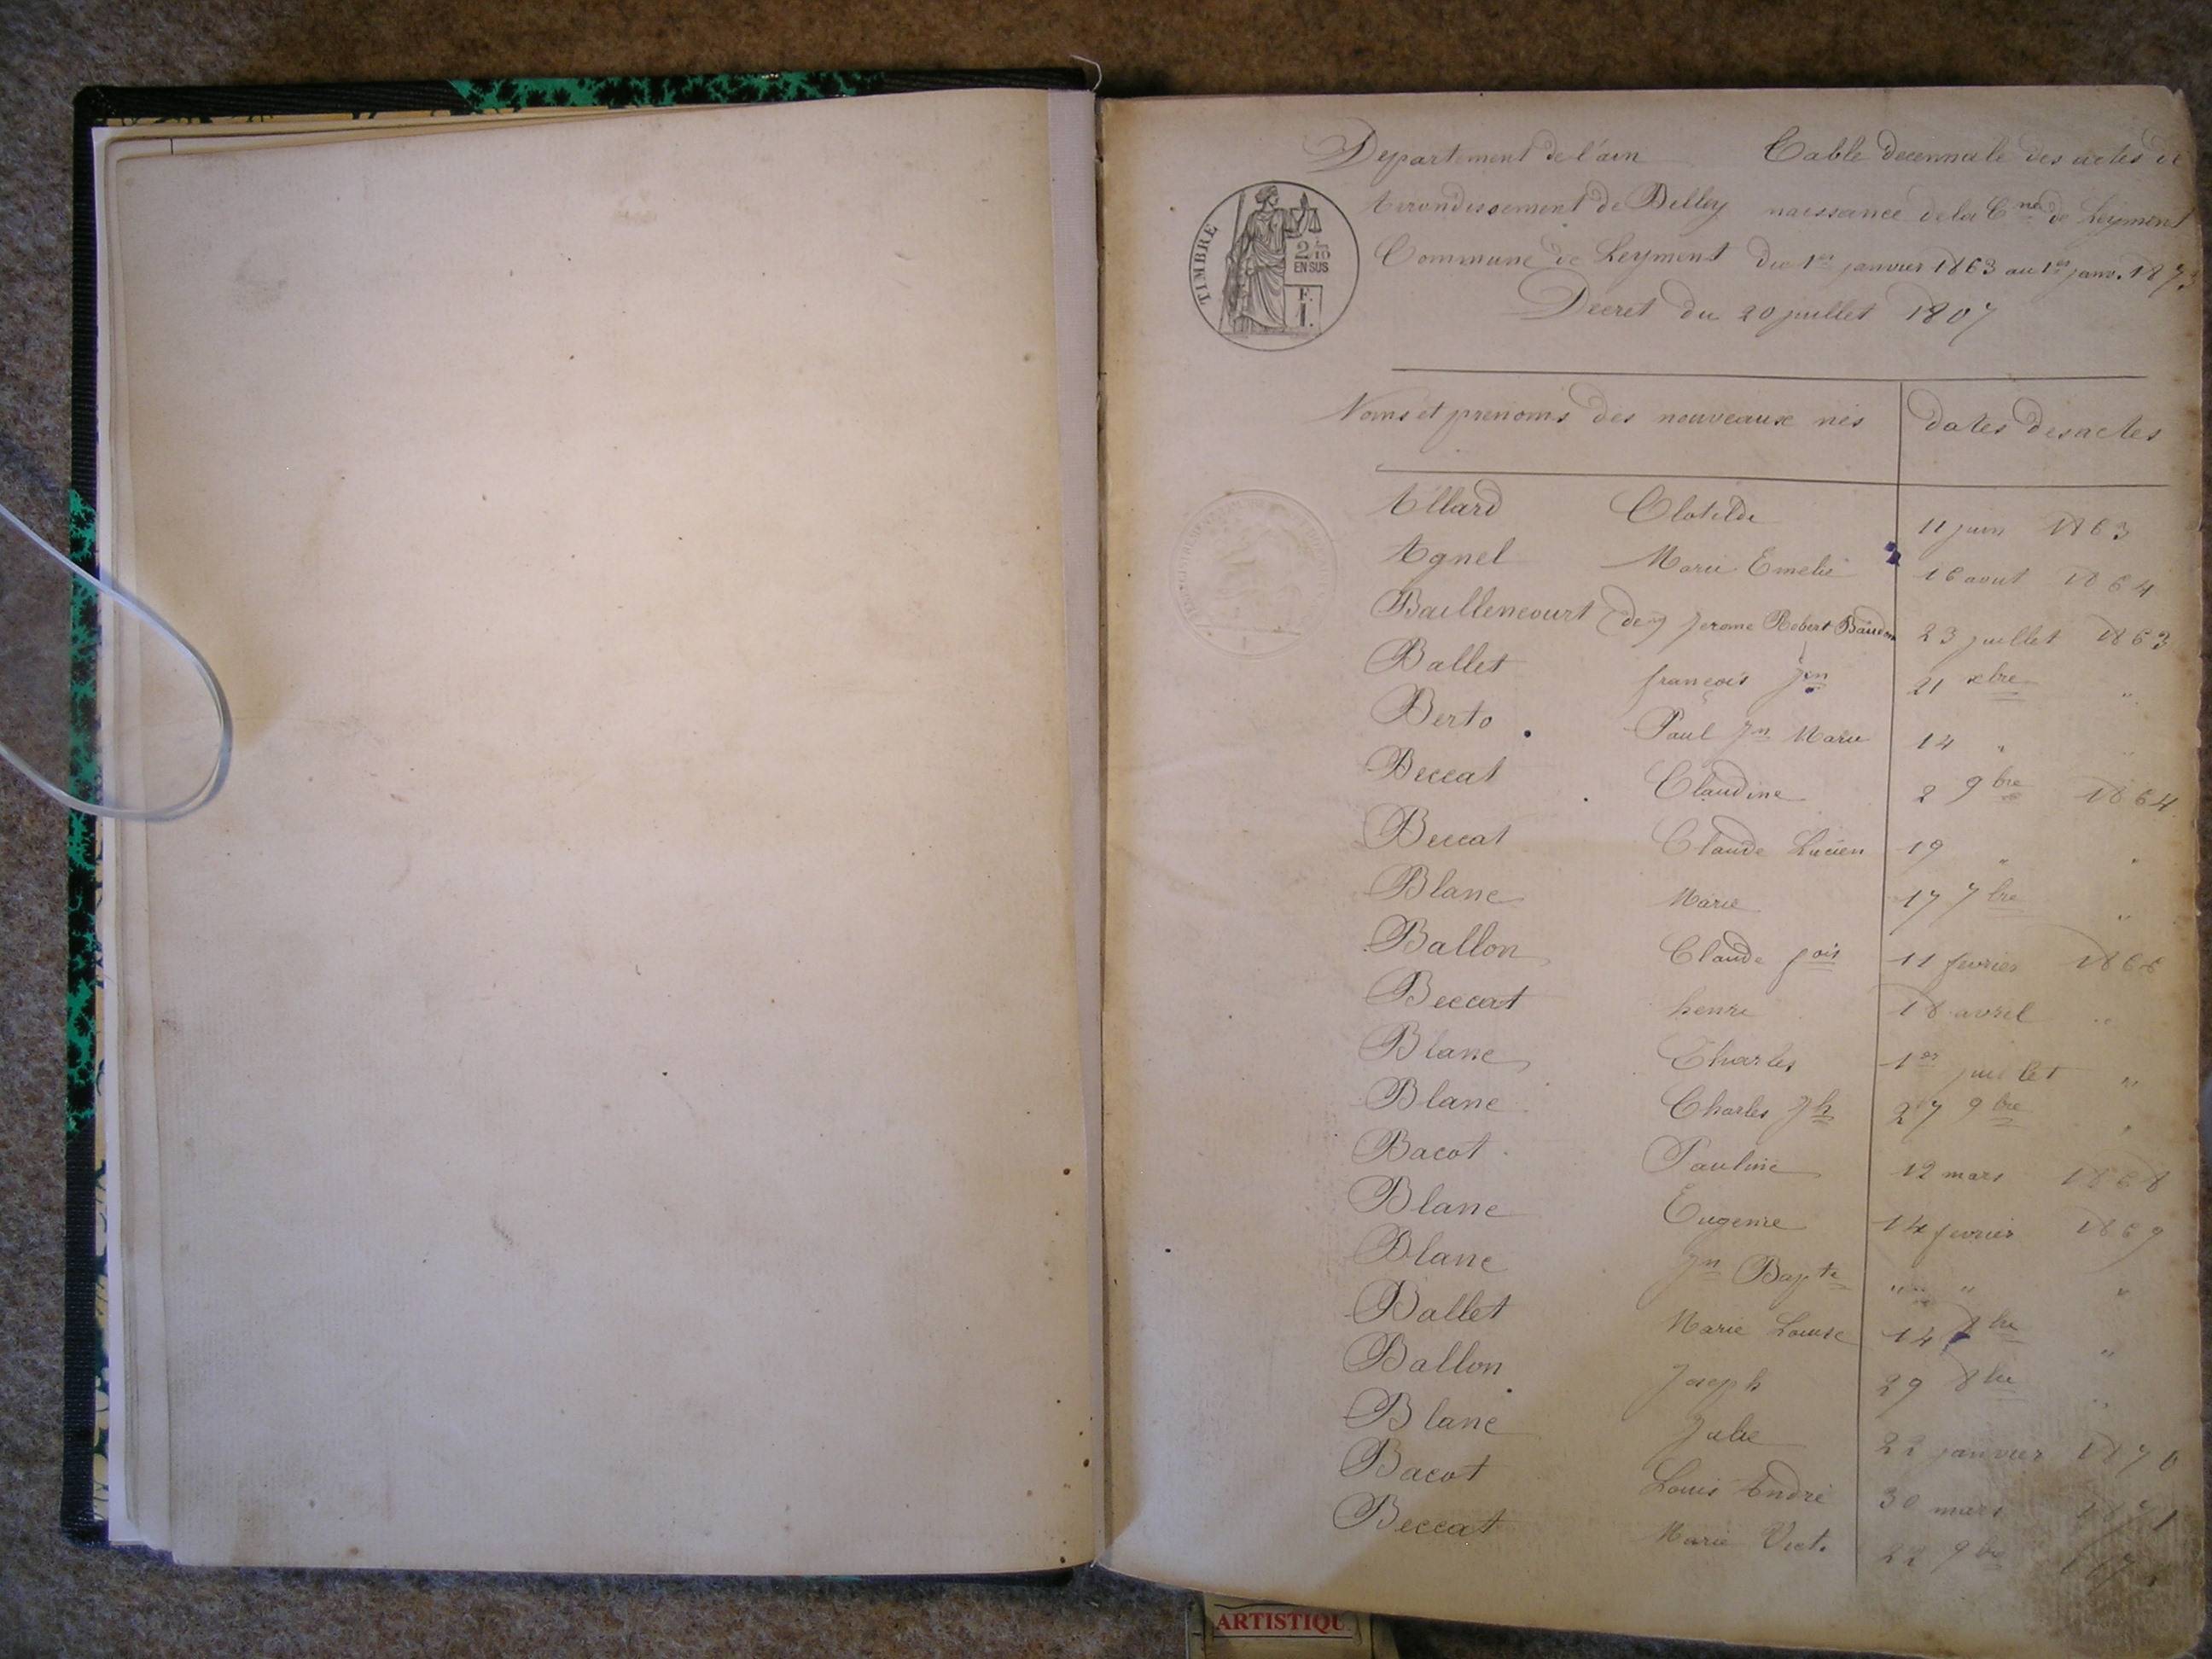 Departement de l'ain Table decennale des actes de
Arrondissement de Belley naissance de la Cne de Leyment
Commune de Leyment du 1er janvier 1863 au 1er janv. 1873
Decret du 20 juillet 1807
TIMBRE
2/10
EN SUS
F.
1.
Noms et prenoms des nouveaux nés dates des actes
Allard Clotilde 11 juin 1863
Agnel Marie Emelie 16 aout 1864
Baillencourt (de) Jerome Robert Baudon 23 juillet 1863
Ballet françois Jn 21 xbre "
Berto Paul Jn Marie 14 " "
Beccat Claudine 2 9bre 1864
Beccat Claude Lucien 19 " "
Blanc Marie 17 7bre "
Ballon Claude fois 11 fevrier 1866
Beccat henri 18 avril "
Blanc Charles 1er juillet "
Blanc Charles Jh 27 9bre "
Bacot Pauline 12 mars 1868
Blanc Eugenie 14 fevrier 1869
Blanc Jn Bapte " " "
Ballet Marie Louise 14 bre "
Ballon Joseph 29 8bre "
Blanc Julie 22 janvier 1870
Bacot Louis André 30 mars 1871
Beccat Marie Vict. 22 9bre
ARTISTIQU